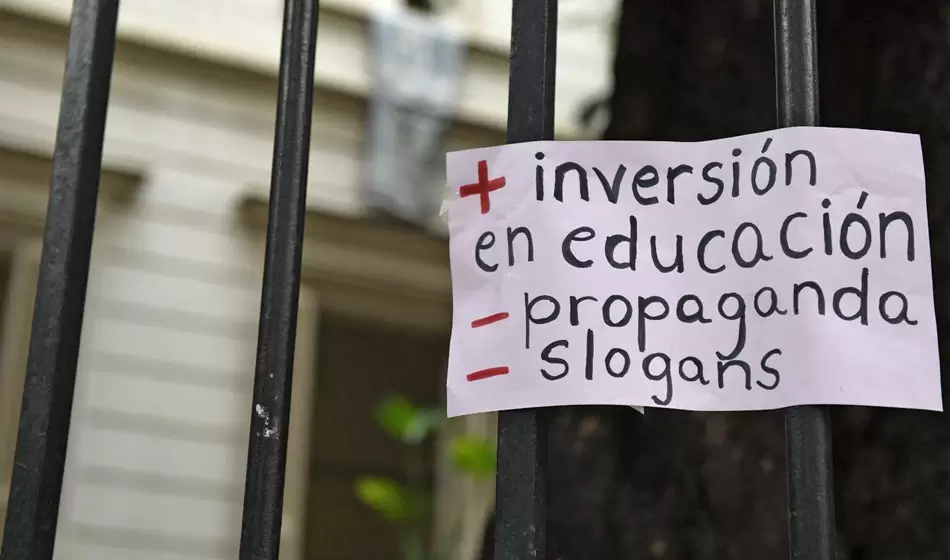 + inversión
en educación
- propaganda
- slogans